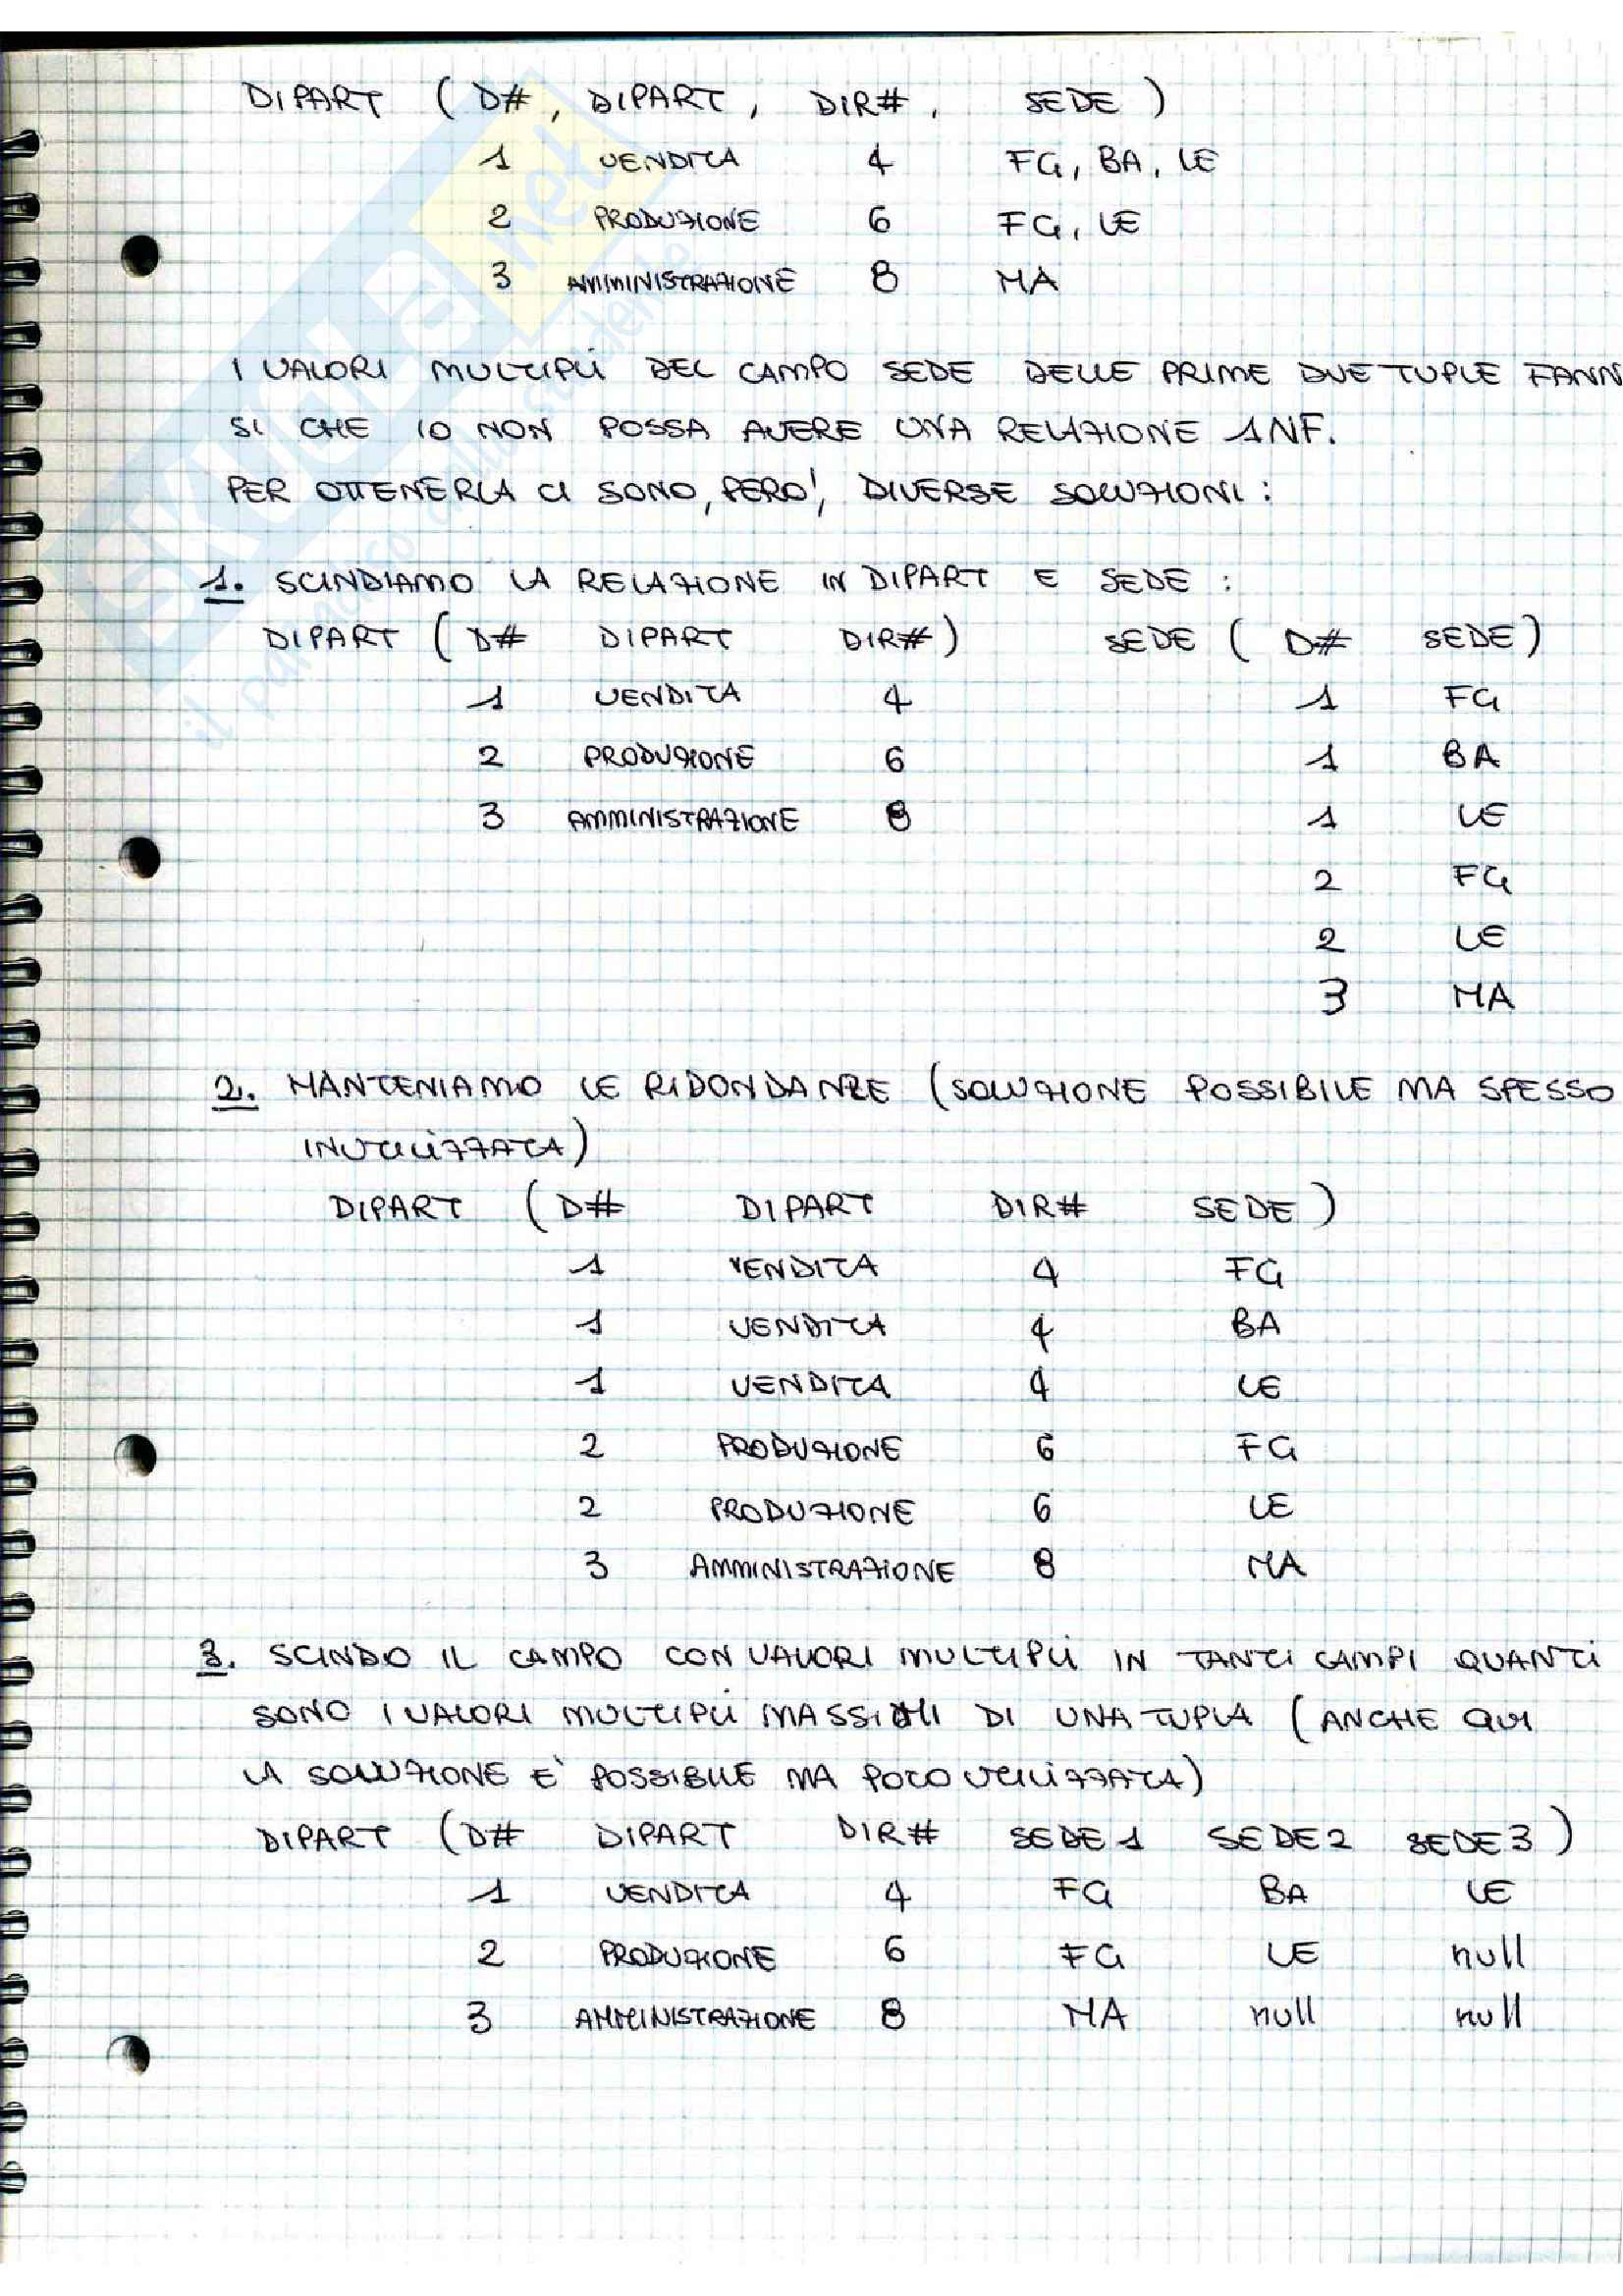 DIPART ( D#, DIPART, DIR#, SEDE )
1 VENDITA 4 FG, BA, LE
2 PRODUZIONE 6 FG, LE
3 AMMINISTRAZIONE 8 MA
I VALORI MULTIPLI DEL CAMPO SEDE DELLE PRIME DUE TUPLE FANN
SI CHE IO NON POSSA AVERE UNA RELAZIONE 1NF.
PER OTTENERLA CI SONO, PERO', DIVERSE SOLUZIONI:
1. SCINDIAMO LA RELAZIONE IN DIPART E SEDE :
DIPART ( D# DIPART DIR# ) SEDE ( D# SEDE )
1 VENDITA 4 1 FG
2 PRODUZIONE 6 1 BA
3 AMMINISTRAZIONE 8 1 LE
2 FG
2 LE
3 MA
2. MANTENIAMO LE RIDONDANZE (SOLUZIONE POSSIBILE MA SPESSO
INUTILIZZATA)
DIPART ( D# DIPART DIR# SEDE )
1 VENDITA 4 FG
1 VENDITA 4 BA
1 VENDITA 4 LE
2 PRODUZIONE 6 FG
2 PRODUZIONE 6 LE
3 AMMINISTRAZIONE 8 MA
3. SCINDO IL CAMPO CON VALORI MULTIPLI IN TANTI CAMPI QUANTI
SONO I VALORI MULTIPLI MASSIMI DI UNA TUPLA (ANCHE QUI
LA SOLUZIONE E' POSSIBILE MA POCO UTILIZZATA)
DIPART ( D# DIPART DIR# SEDE1 SEDE2 SEDE3 )
1 VENDITA 4 FG BA LE
2 PRODUZIONE 6 FG LE null
3 AMMINISTRAZIONE 8 MA null null
skuola.net
il paradiso dello studente